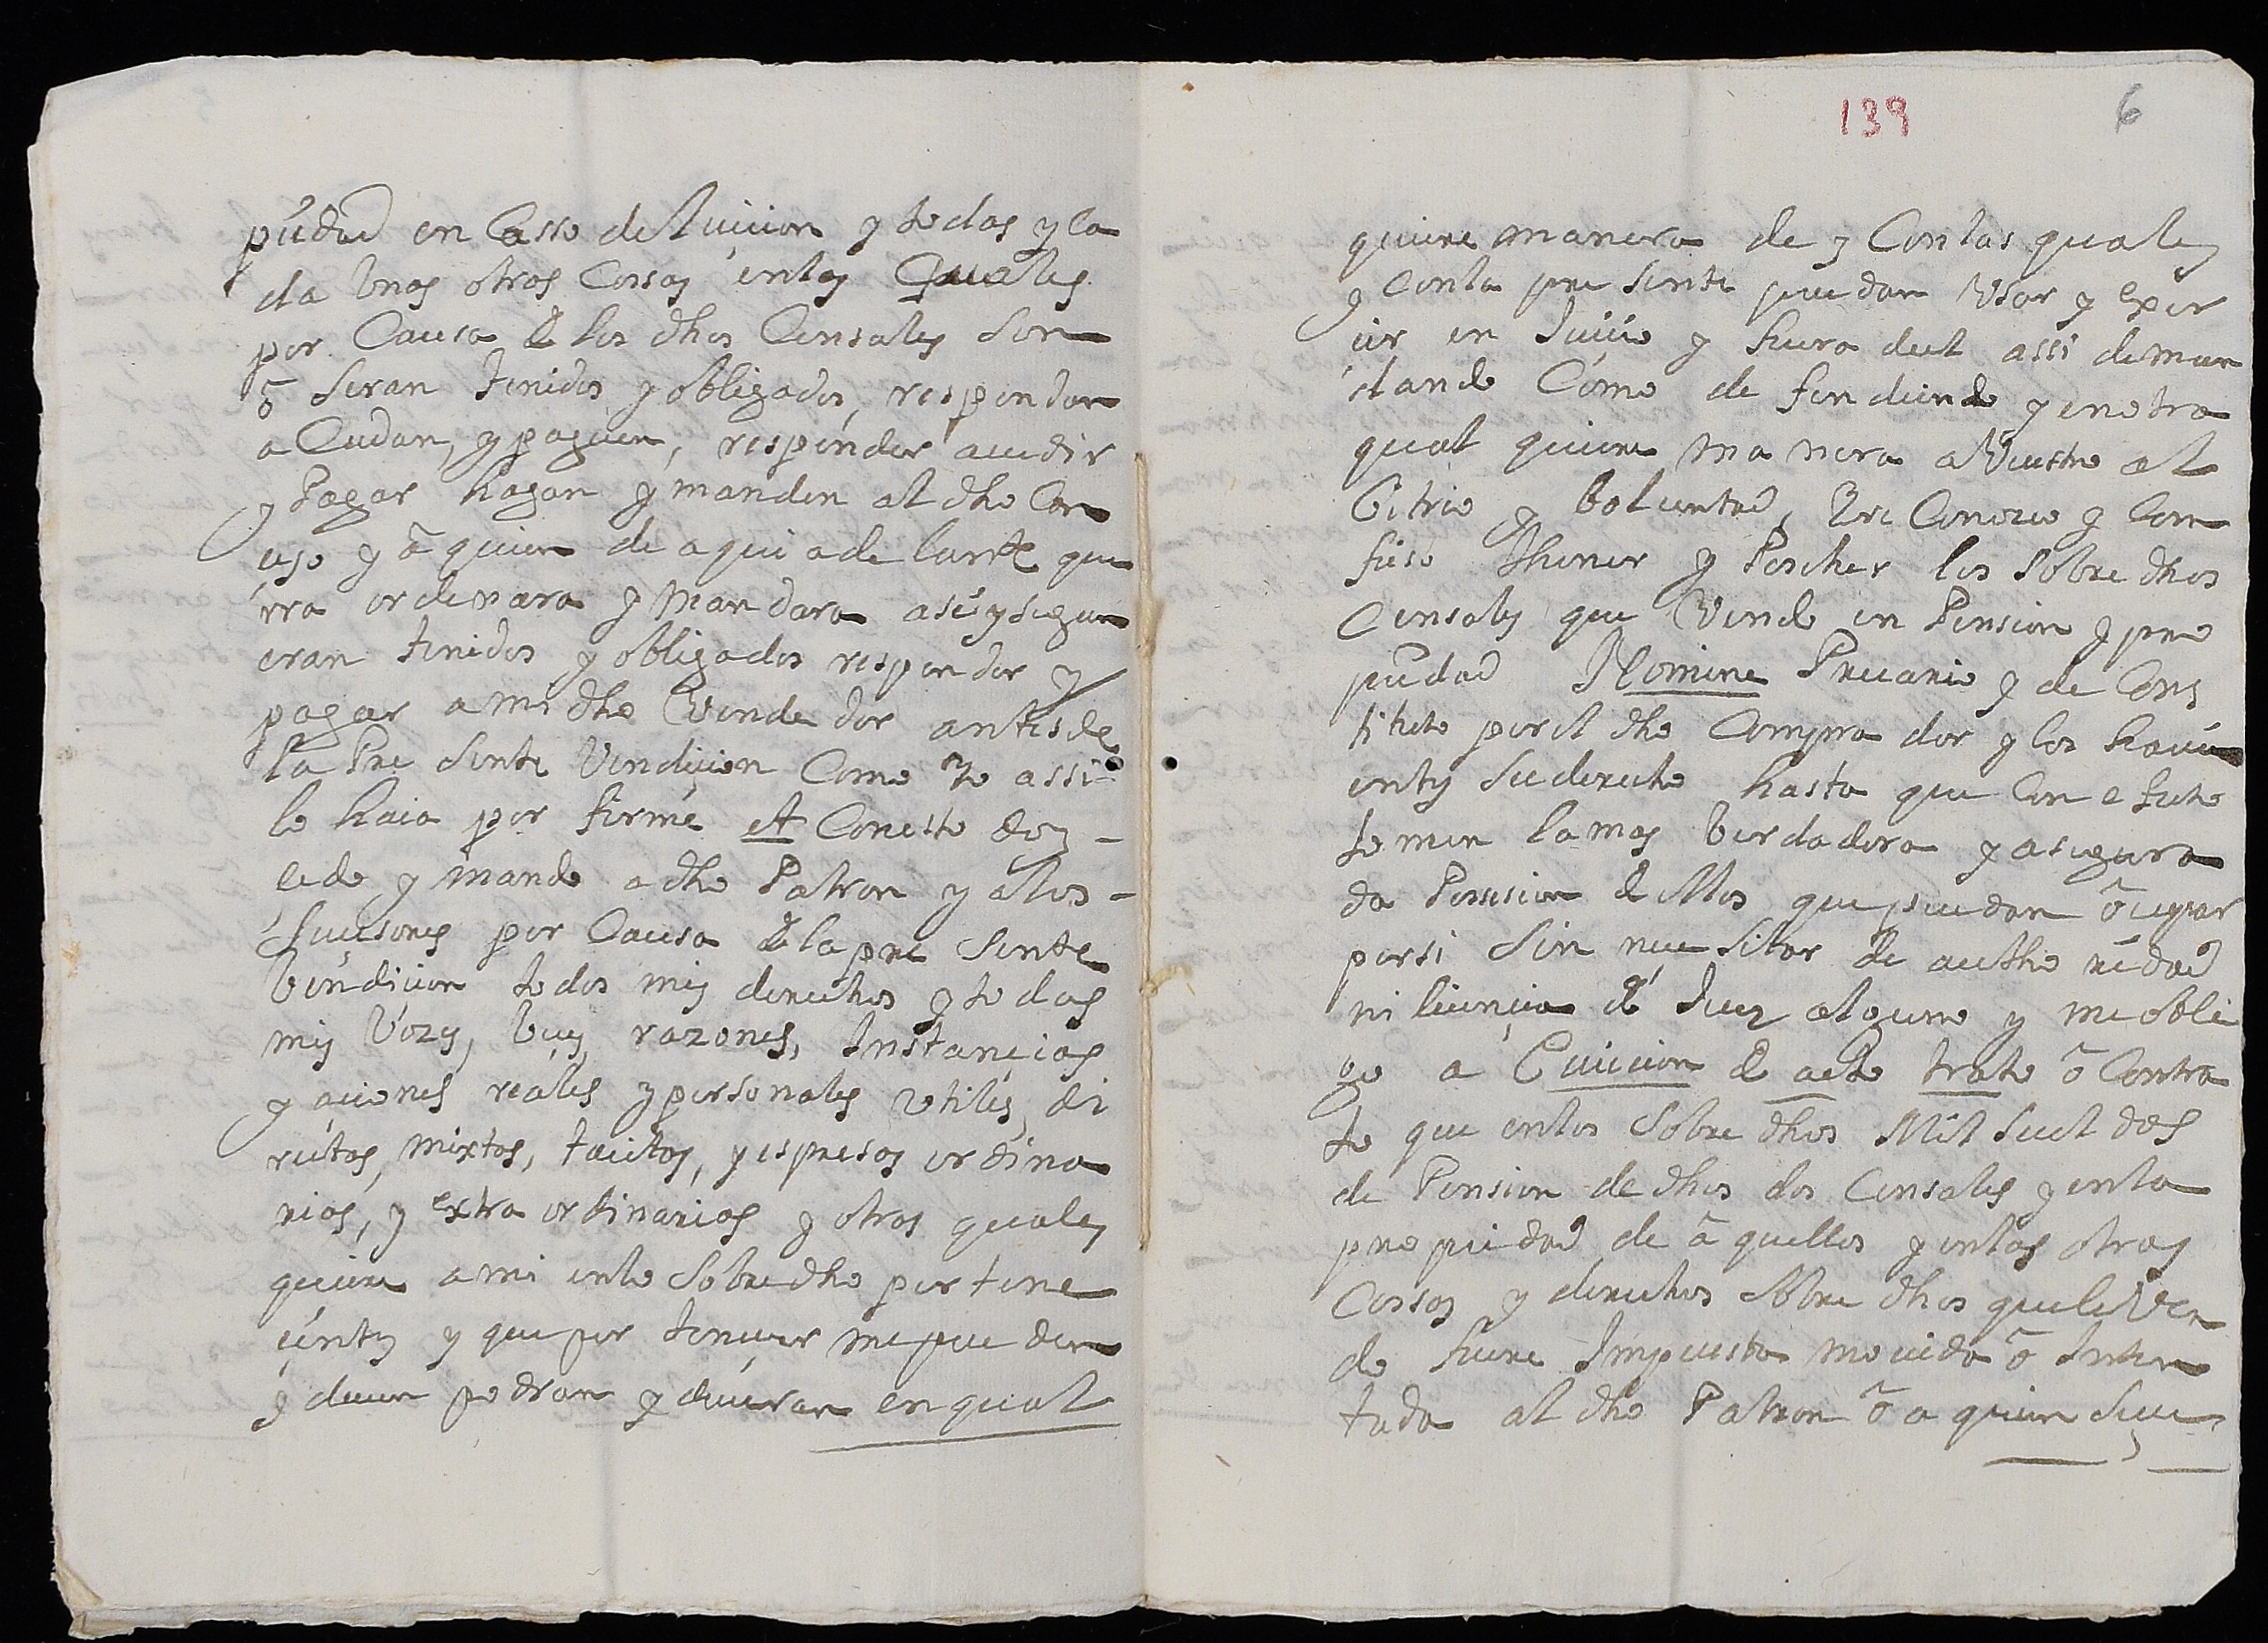 piedad en Casso de luicion y todas y ca
da unas otras Cossas en las Quales
por Causa de los dhos Censales son
ō seran tenidos y obligados, respondan
a Cudan, y paguen, responder acudir
y Pagar hagan y manden al dho Con
cejo y ā quien de aqui ade lante que
rra ordenara y mandara asi y segun
eran tenidos y obligados responder y
pagar a mi dho Vende dor antes de
la Pre sente Vendicion Como Yo assi
lo haia por firme et Con esto doy
cedo y mando a dho Patron y a los
Sucesores por Causa de la pre sente
Vendicion todos mis derechos y todas
mis Vozes, Veces, razones, Instancias
y aciones reales y personales utiles, di
rectas, mixtas, tacitas, y espresas ordina
rias, y extra ordinarias y otras quales
quiere a mi en lo sobre dho pertene
cientes y que per tenecer me pue den
y deuen podran y deueran en qual
139
6
quiere manera de y Con las quales
y Con la pre sente puedan Usar y exer
cir en Juicio y fuera del assi deman
dando Como de fendiendo y en otra
qual quiere ma nera a Vuestro al
bitrio y boluntad, Re Conozco y Con
fieso thener y Poseher los sobre dhos
Censales que Vendo en Pension y pro
piedad Nomine Precario y de Cons
tituto por el dho Compra dor y los hauie
entes su derecho hasta que Con efecto
to men la mas Verdadera y asegura
da Possesion de ellos que puedan ō cupar
por si sin nece sitar de autho ridad
ni licencia de Juez alguno y me obli
go a Euiccion de acto trato ō Contra
to que en los sobre dhos Mil suel dos
de Pension de dhos dos Censales y en la
pro piedad de ā quellos y en las otras
Cossas y derechos sobre dhos que le Ven
do fuere Impuesta mouida ō Inten
tada al dho Patron ō a quien suce